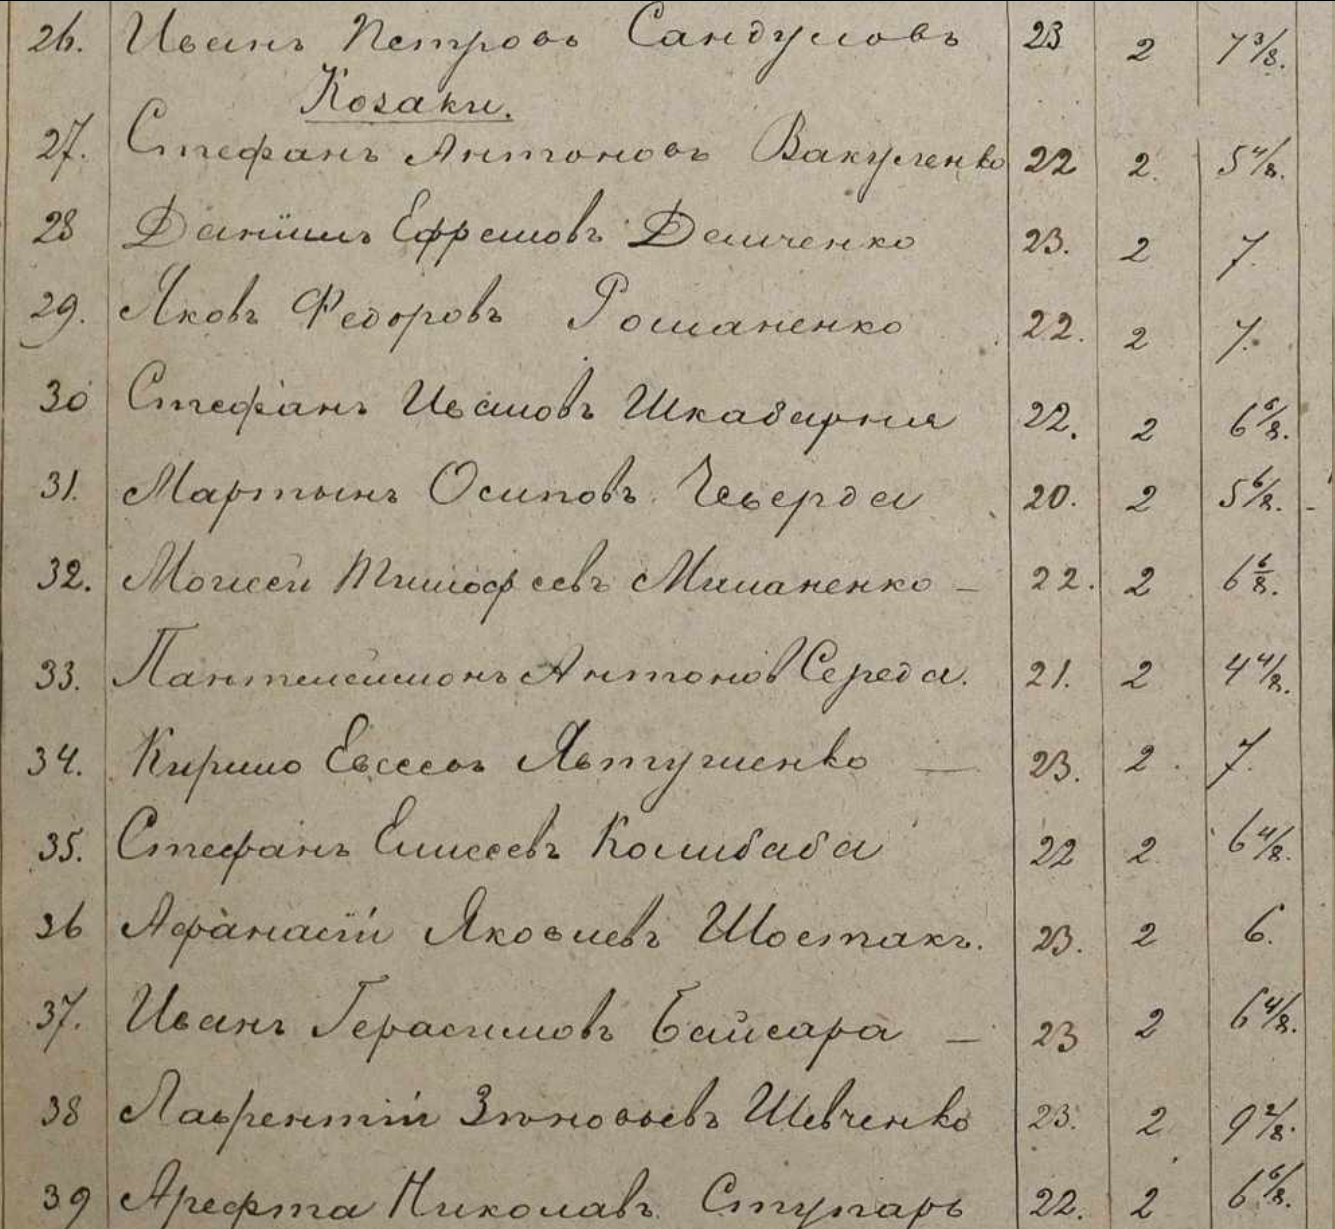 26. Иванъ Петровъ Сандуловъ 23 2 7 3/8.
Козаки.
27. Стефанъ Антоновъ Вакуленко 22 2. 5 4/8.
28 Даніилъ Ефремовъ Демченко 23. 2 7.
29. Яковъ Федоровъ Романенко 22. 2 7.
30 Стефанъ Ивановъ Шкабарня 22. 2 6 6/8.
31. Мартынъ Осиповъ Чверда 20. 2 5 6/8.
32. Моисей Тимофеевъ Миланенко – 22. 2 6 6/8.
33. Пантелеимонъ Антонов Середа. 21. 2 4 4/8.
34. Кирило Евсеевъ Явтушенко — 23. 2. 7.
35. Стефанъ Елисеевъ Колибаба 22 2 6 4/8.
36 Афанасій Яковлевъ Шостакъ. 23. 2 6.
37. Иванъ Герасимовъ Байсара – 23 2 6 4/8.
38 Лаврентій Зиновьевъ Шевченко 23. 2 9 2/8.
39 Арефта Николаевъ Ступарь 22. 2 6 6/8.